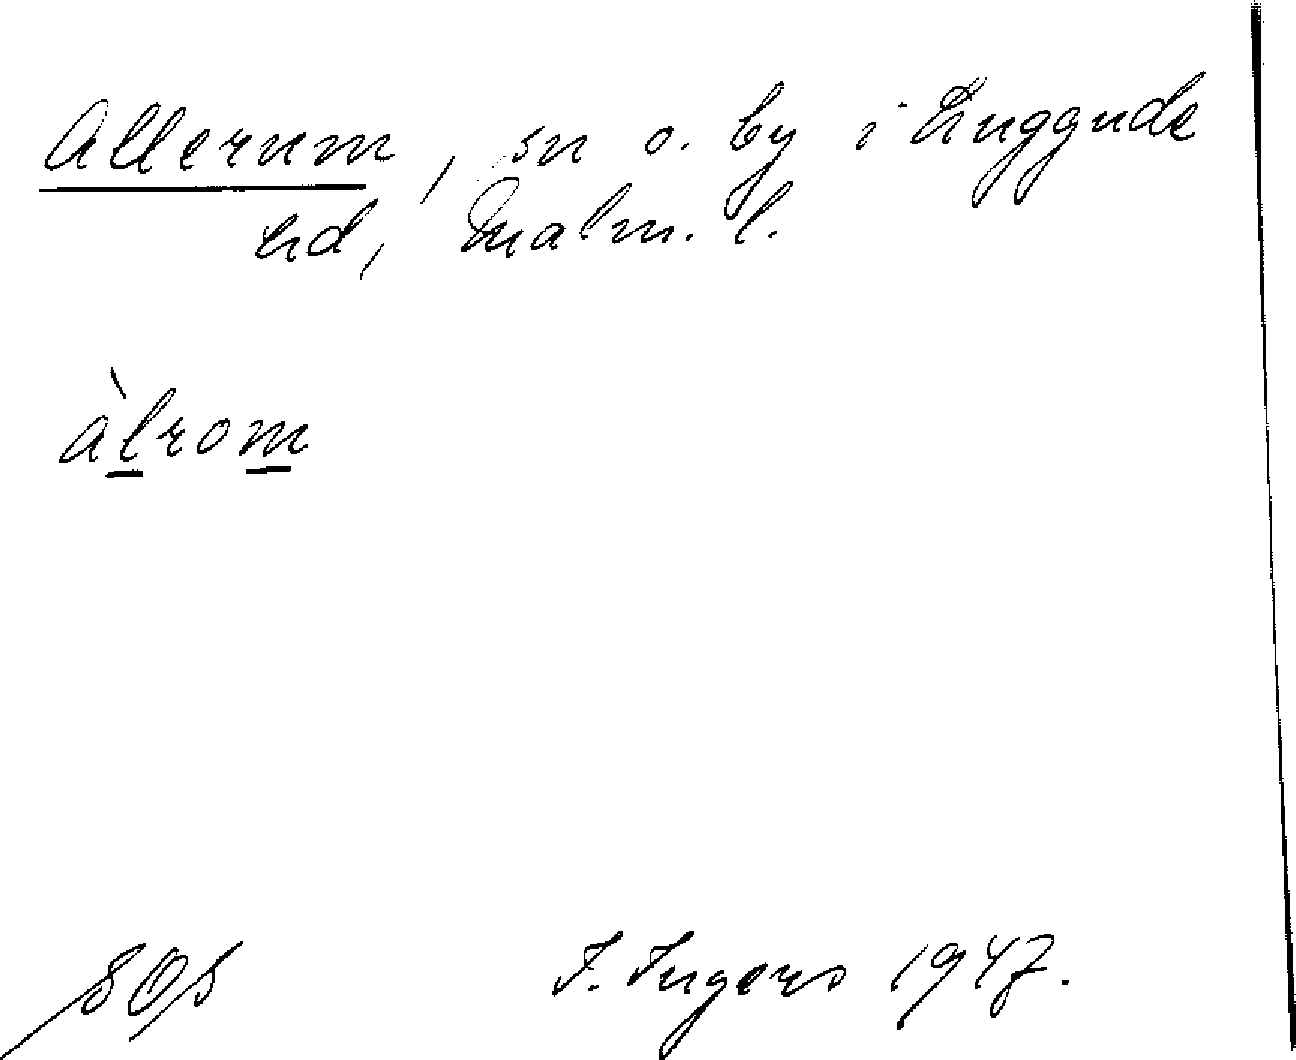 Allerum, sn o. by i Luggude
hd, Malm. l.
àlrom
SOS I. Ingers 1947.